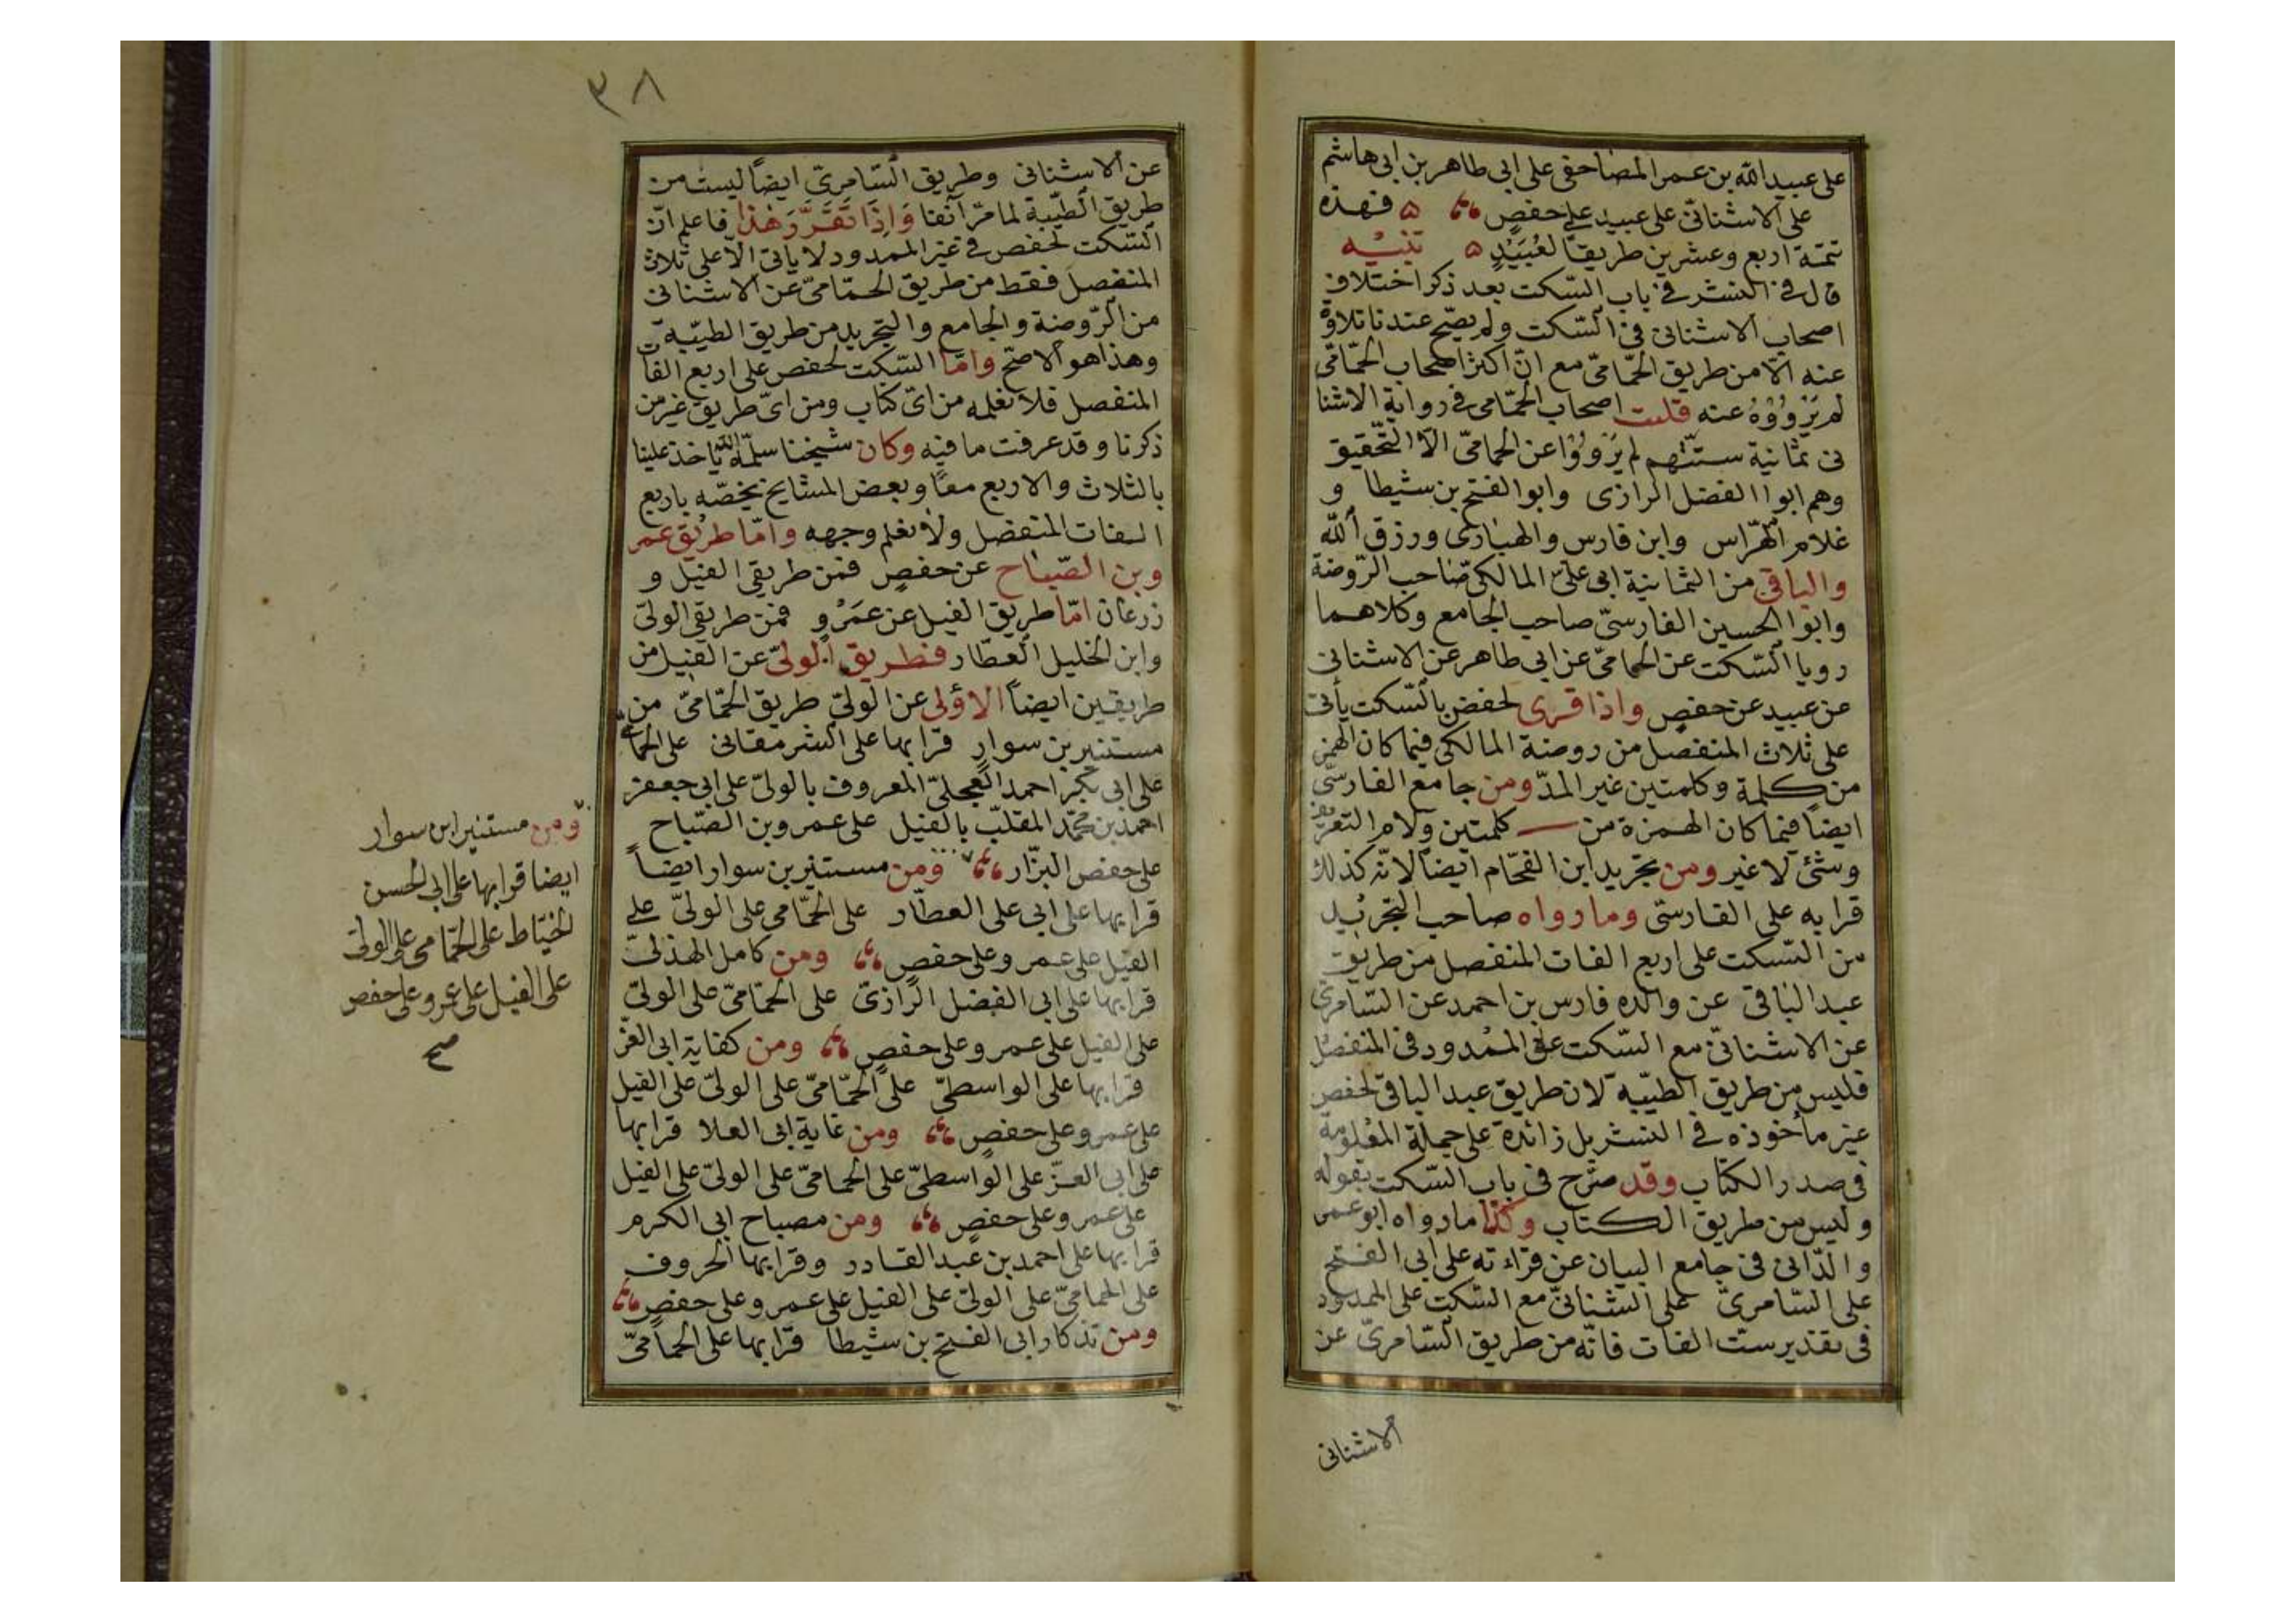 على عبيد الله بن عمر المصاحفى على ابى طاهر بن ابى هاشم
على الاشنانىّ على عبيد على حفصٍ ۵ فهذه
تتمة اربع وعشرين طريقاً لعُبَيْدٍ ۵ تنبيه
قال فى النشر فى باب السّكت بعد ذكر اختلاف
اصحاب الاشنانى فى السّكت ولم يصّح عندنا تلاوة
عنه الّا من طريق الحمّامىّ مع انّ اكثر اصحاب الحمّامى
لم يَرْوُوْهُ عنه قلت اصحاب الحمّامى فى رواية الاشنا
نى ثمانية ستّتهم لم يَرْوُوْا عن الحمامىّ الّا التّحقيق
وهم ابوا الفضل الرازى وابو الفتح بن شيطا و
غلام الهرّاس وابن فارس والهبارى ورزق الله
والباقى من الثمانية ابى علىّ المالكىّ صاحب الرّوضة
وابوا الحسين الفارسىّ صاحب الجامع وكلاهما
رويا السّكت عن الحمامىّ عن ابى طاهر عن الاشنانى
عن عبيد عن حفصٍ واذا قرى لحفص بالسّكت يأتى
على ثلاث المنفصل من روضة المالكى فيما كان الهمز
من كلمة وكلمتين غير المدّ ومن جامع الفارسىّ
ايضاً فيما كان الهمزة من كلمتين ولام التعريف
وشئ لا غير ومن تجريد ابن الفحّام ايضاً لانّه كذلك
قرا به على الفارسىّ وما رواه صاحب التجريد
من السّكت على اربع الفات المنفصل من طريق
عبد الباقى عن والده فارس بن احمد عن السّامرىّ
عن الاشنانىّ مع السّكت على الممدود فى المنفصل
فليس من طريق الطيّبة لان طريق عبد الباقى لحفص
غير مأخوذه فى النشر بل زائدة على جملة المعلومة
فى صدر الكتاب وقد صرّح فى باب السّكت بقوله
وليس من طريق الكتاب وكذا ما رواه ابو عمر
والدّانى فى جامع البيان عن قراءته على ابى الفتح
على السّامرىّ على الشنانىّ مع السّكت على الممدود
فى تقدير ستّ الفات فانّه من طريق السّامرىّ عن
الاشنانى
٣٨
عن الاشنانى وطريق السّامرىّ ايضاً ليست من
طريق الطّيّبة لما مرّ آنفا وَاِذَا تَقَرَّرَ هٰذا فاعلم انّ
السّكت لحفص فى غير الممدود لا ياتى الّا على ثلاث
المنفصل فقط من طريق الحمّامىّ عن الاشنانى
من الرّوضة والجامع والتجريد من طريق الطيّبة
وهذا هو الاصحّ وامّا السّكت لحفص على اربع الفات
المنفصل فلا نعلمه من اىّ كتاب ومن اىّ طريق غير من
ذكرنا وقد عرفت ما فيه وكان شيخنا سلّمه الله يأخذ علينا
بالثلاث والاربع معاً وبعض المشايخ يخصّه باربع
الفات المنفصل ولا نعلم وجهه وامّا طريق عمر
وبن الصّباح عن حفصٍ فمن طريقى الفيل و
زرعان امّا طريق الفيل عن عَمْرٍو فمن طريقى الولىّ
وابن الخليل العطّار فطريق الولىّ عن الفيل من
طريقين ايضاً الاولى عن الولىّ طريق الحمّامىّ من
مستنير بن سوار قرا بها على الشرمقانى على الحمّامى
على ابى بكر احمد العجلىّ المعروف بالولىّ على ابى جعفر
احمد بن محمّد المقلّب بالفيل على عمرو بن الصّباح
على حفص البزّار ومن مستنير بن سوار ايضاً
قرا بها على ابى على العطّار على الحمّامى على الولىّ على
الفيل على عمرو على حفصٍ ومن كامل الهذلىّ
قرا بها على ابى الفضل الرّازىّ على الحمّامىّ على الولىّ
على الفيل على عمرو على حفصٍ ومن كفاية ابى العزّ
قرا بها على الواسطىّ على الحمّامىّ على الولىّ على الفيل
على عمرو على حفصٍ ومن غاية ابى العلا قرا بها
على ابى العزّ على الواسطىّ على الحمامىّ على الولىّ على الفيل
على عمرو على حفصٍ ومن مصباح ابى الكرم
قرا بها على احمد بن عبد القادر وقرا بها الحروف
على الحمامىّ على الولىّ على الفيل على عمرو على حفصٍ
ومن تذكار ابى الفتح بن شيطا قرا بها على الحمامىّ
ومن مستنير ابن سوار
ايضا قرا بها على ابى الحسن
الخيّاط على الحمّامى على الولىّ
على الفيل على عمرو على حفص
صح